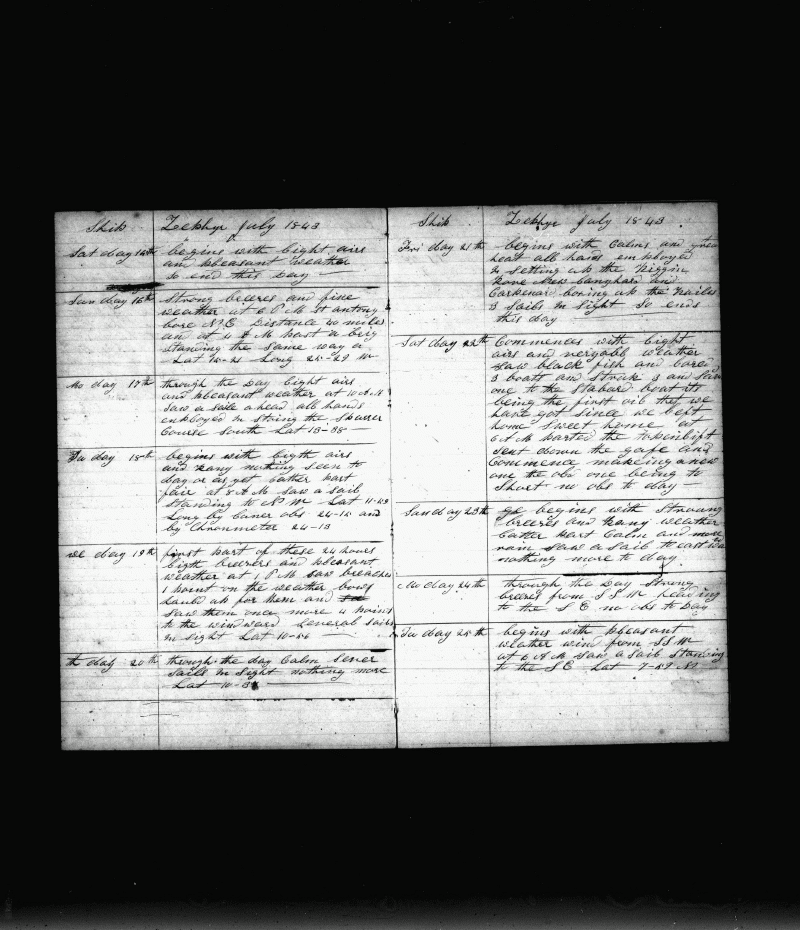 Ship Zephyr July 1843
Sat day 15th begins with light airs
and pleasant weather
so end this day
Sun day 16th Strong breeses and fine
weather at 6 P M St antony
bore N E Distance 40 miles
and at 4 P M past a brig
standing the same way a
Lat 15-21 Long 25-29 W
Mo day 17th through the Day light airs
and pleasant weather at 10 A M
saw a sale ahead all hands
employed in
Course South Lat 13-38
Tu day 18th begins with ligth airs
and hazy nothing seen to
day as yet Latter part
fair at 8 A M saw a sail
standing to N W Lat 11-49
Long by Luner obs 24-12 and
by Chronmeter 24-13
We day 19th first part of these 24 hours
ligth breezes and pleasant
weather at 1 P M saw breaches
1 point on the weather bows
haul up for them and
saw them once more 4 points
to the windward several sails
in sight Lat 10-56
th day 20th through the day Calm sever
sails in sight nothing more
Lat 10-3
Ship Zephyr July 1843
Fri day 21th begins with Calms and
heat all hands employed
in setting up the riggin
and
up the
3 sails in sight So ends
this day
Sat day 22th Commences with light
airs and weather
saw black fish and lored
3 boats and struk 3 and
one to the stabard boat its
being the first oil that we
have got since we left
home sweet home at
6 A M parted the topenlift
sent down the gafe and
Commence makeing a new
one the old one being to
short no obs to day
Sun day 23th begins with Stroung
breezes and hazy weather
Latter part Calm and more
rain saw a sail to eastwa
nothing more to day
Mo day 24th through the Day Strong
breeses from S S W heading
to the S E no obs to Day
Tu day 25th begins with pleasant
weather wind from S S W
at 6 A M saw a sail standing
to the S E Lat 7-49 N